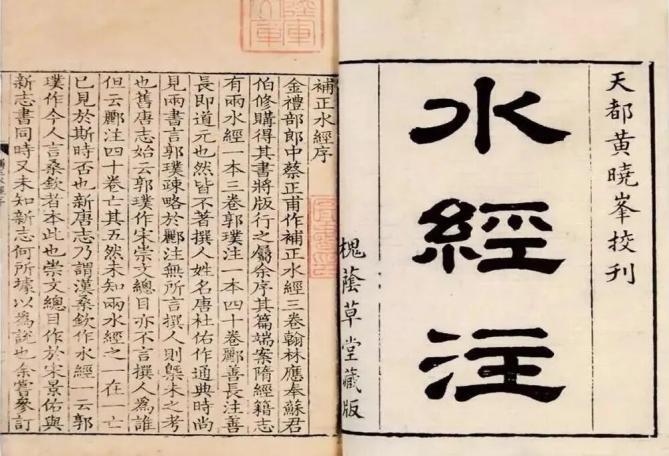 天都黃曉峯挍刊
水經注
槐蔭草堂藏版
補正水經序
金禮部郎中蔡正甫作補正水經三卷翰林應奉蘇君
伯修購得其書將版行之屬余序其篇端案隋經籍志
有兩水經一本三卷郭璞注一本四十卷酈善長注善
長即道元也然皆不著撰人姓名唐杜佑作通典時尚
見兩書言郭璞疎略於酈注無所言撰人則槩未之考
也舊唐志始云郭璞作宋崇文總目亦不言撰人為誰
但云酈注四十卷亡其五然未知兩水經之一在一亡
已見於斯時否也新唐志乃謂漢桑欽作水經一云郭
璞作今人言桑欽者本此也崇文總目作於宋景佑與
新志書同時又未知新志何所據以為說也余嘗參訂